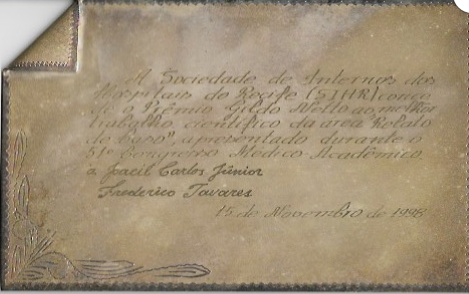 A Sociedade de Internos dos
Hospitais do Recife (SIHR) conce-
de o Prêmio Gildo Netto ao melhor
trabalho científico da área "Relato
de Caso", apresentado durante o
51º Congresso Médico Acadêmico
a Jacil Carlos Júnior
Frederico Tavares
15 de Novembro de 1998